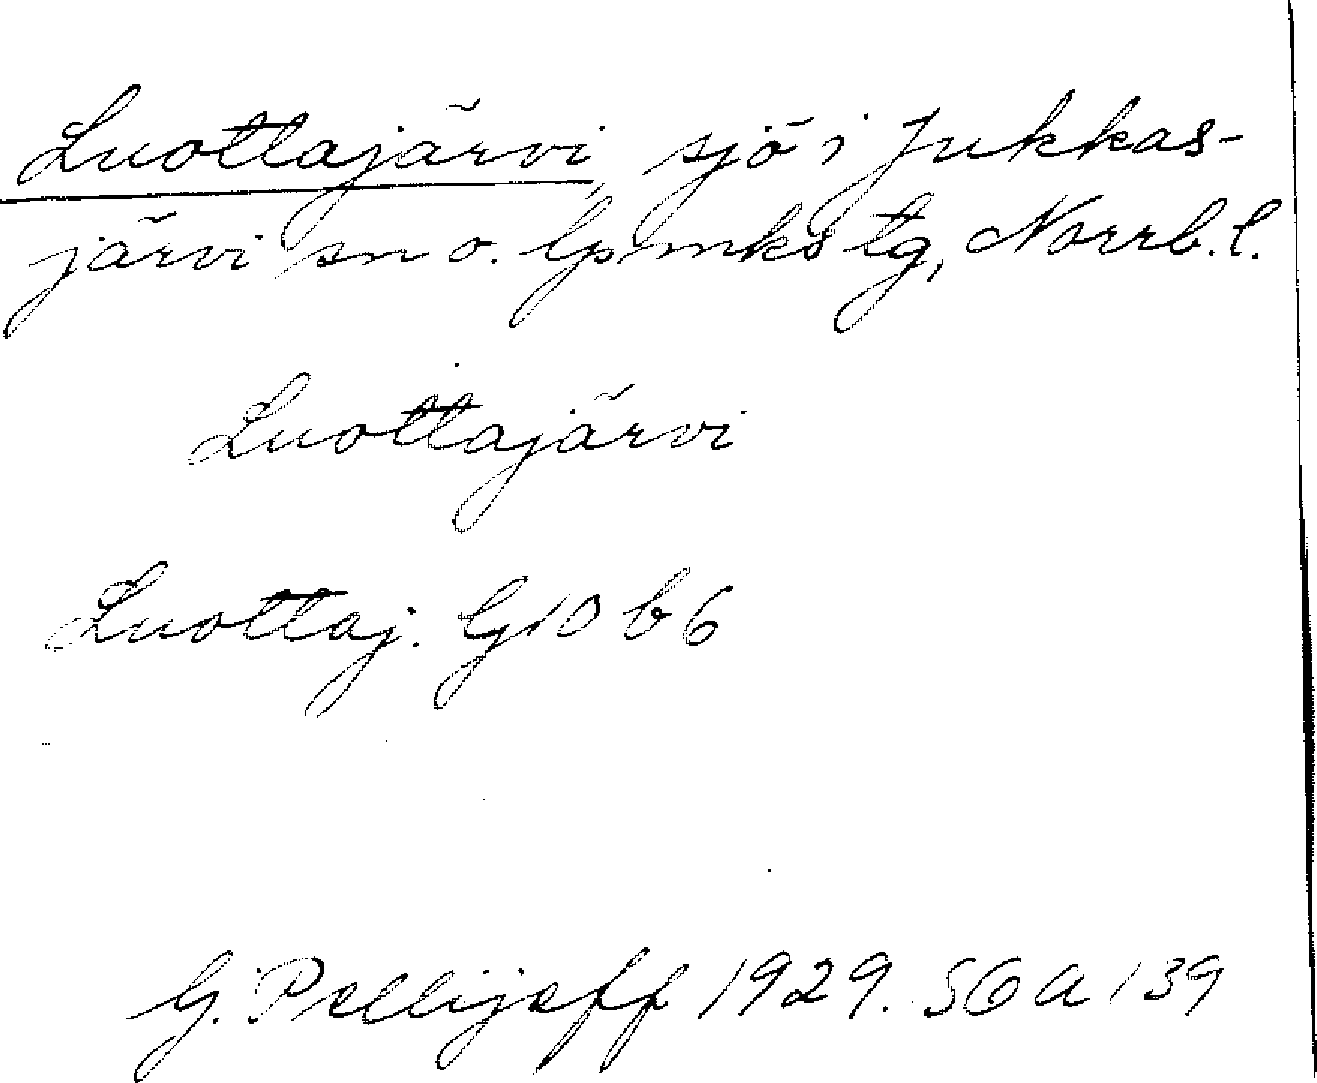 Luottajärvi, sjö i Jukkas-
järvi sn o. lpmks tg, Norrb. l.
Luottajärvi
Luottaj. G10 b6
G. Pellijeff 1929. SGA 139